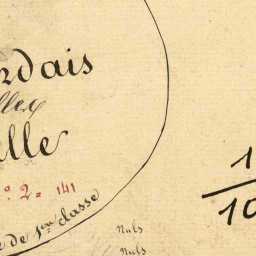 rdais
lley
lle
o. 2 = 141
e de 1ere classe
1
10
Nuls
Nuls